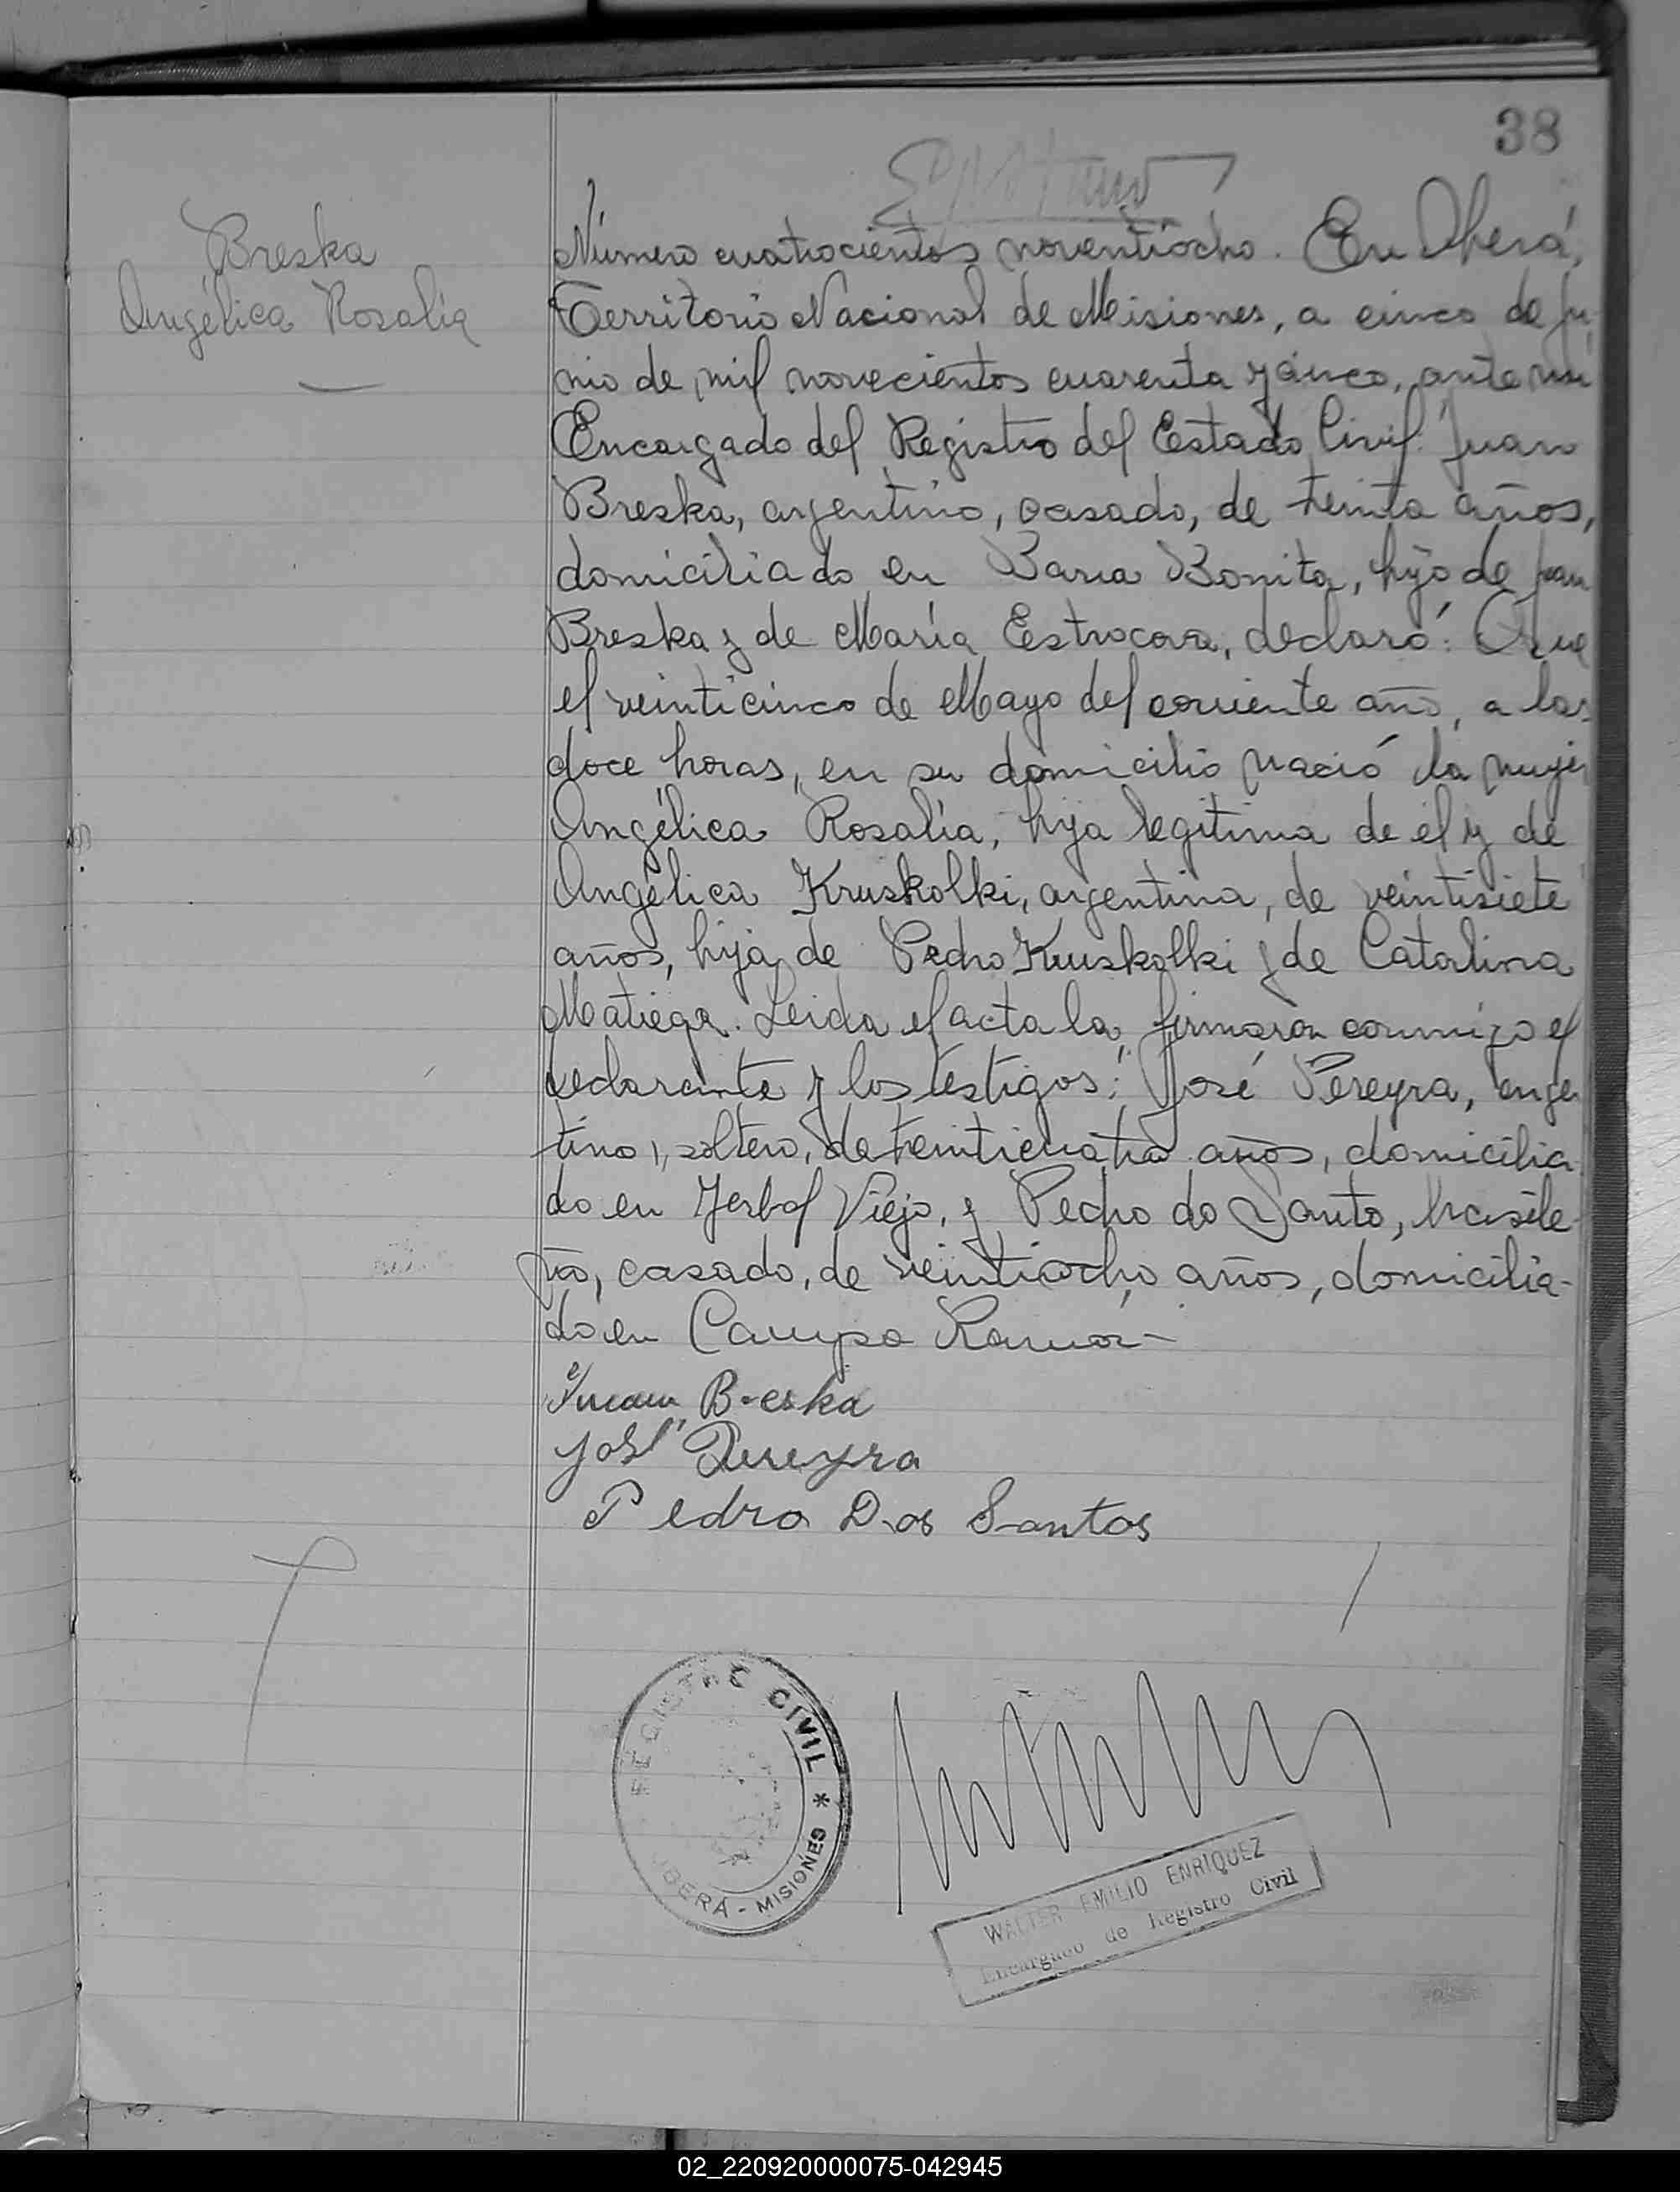 38
Breska
Angélica Rosalía
Número cuatrocientos noventiocho. En Oberá,
Territorio Nacional de Misiones, a cinco de Ju-
nio de mil novecientos cuarenta y cinco, ante mi
Encargado del Registro del Estado Civil: Juan
Breska, argentino, casado, de treinta años,
domiciliado en Barra Bonita, hijo de Juan
Breska y de María Estrocova, declaró: Que
el veinticinco de Mayo del corriente año, a las
doce horas, en su domicilio nació la mujer
Angélica Rosalía, hija legitima de él y de
Angélica Kruskolki, argentina, de veintisiete
años, hija de Pedro Kruskolki y de Catalina
Matiega. Leida el acta la firmaron conmigo el
declarante y los testigos: José Pereyra, argen
tino, soltero, de treinticuatro años, domicilia
do en Yerbal Viejo, y Pedro do Santo, brasile-
ño, casado, de veintiocho años, domicilia-
do en Campo Ramón
Juan Breska
José Pereyra
Pedro Dos Santos
REGISTRO CIVIL * OBERÁ - MISIONES
WALTER EMILIO ENRIQUEZ
Encargado de Registro Civil
02_220920000075-042945